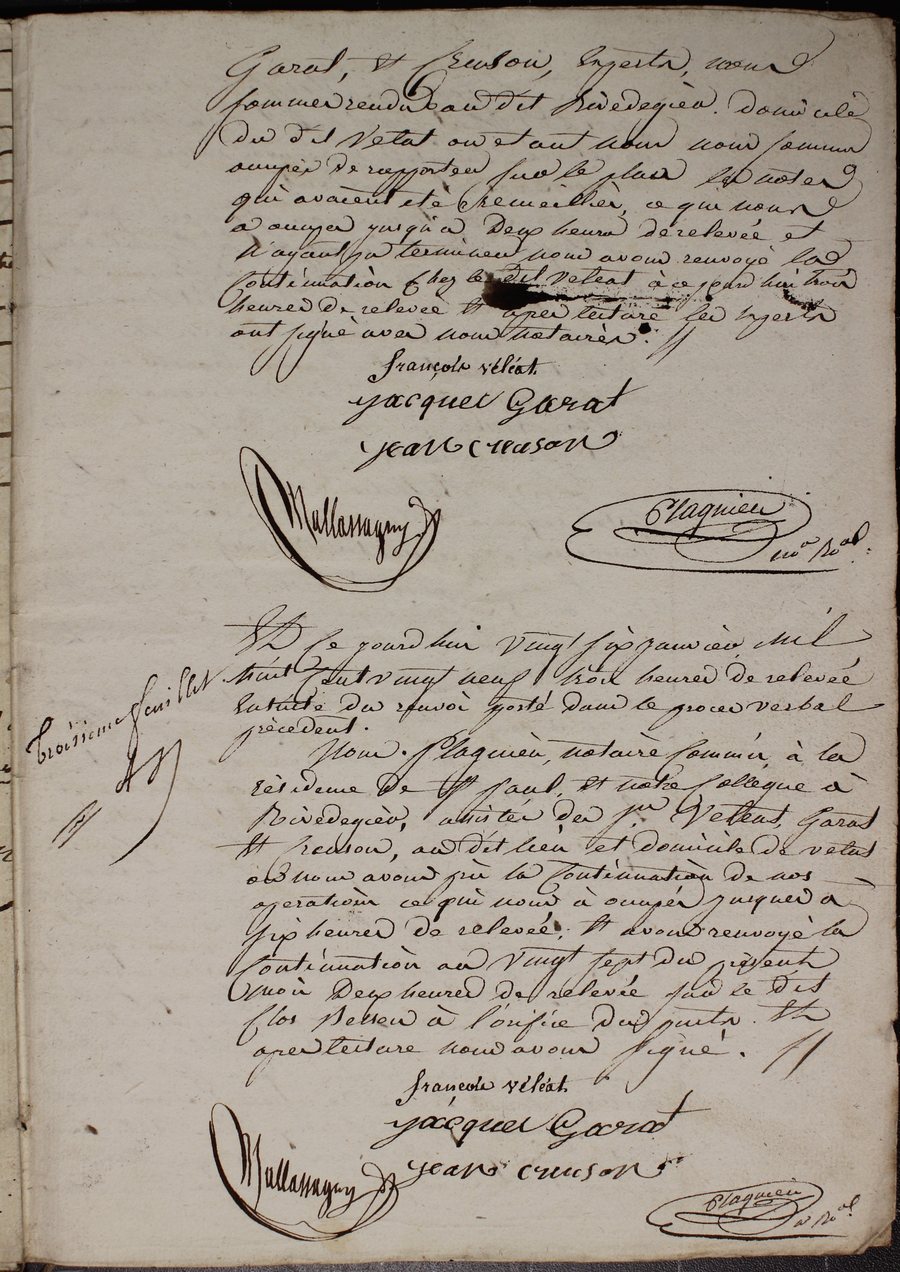 Garat, et Creuson, Experts, nous
sommes rendu au dit Rivedegier. domicile
du dit Veleat ou etant nous nous sommes
occupés de rapporter sur le plan les notes
qui avaient eté recueillies, ce qui nous
a occupé jusqu'a Deux heures de relevée et
n'ayant pu terminer nous avons renvoyé la
Continuation Chez le dit Veleat à ce jourd'hui trois
heures de relevée Et apres lecture les experts
ont signé avec nous notaires.
françois véléat
jacques Garat
jean creuson
Mallassagny
Plagnieu
nre Roal.
Et Ce jourd'hui Vingt six janvier Mil
huit Cent vingt neuf trois heures de relevée
Ensuite du renvoi porté dans le proces verbal
précédent.
Troisieme feuillet
Nous. Plagnieu, notaire Commis, à la
résidence de St Paul, Et notre Collegue à
Rivedegier, assistés des srs Veleat, Garat
Et Creuson, au dit lieu et domicile de Veleat
où nous avons pris la Continuation de nos
operations ce qui nous à occupés jusques à
six heures de relevée, Et avons renvoyé la
Continuation au Vingt sept du présent
mois Deux heures de relevée sur le dit
Clos à l'orifice du puits. Et
apres lecture nous avons signé.
françois véléat
jacques Garat
jean creuson
Mallassagny
Plagnieu
n Roal.